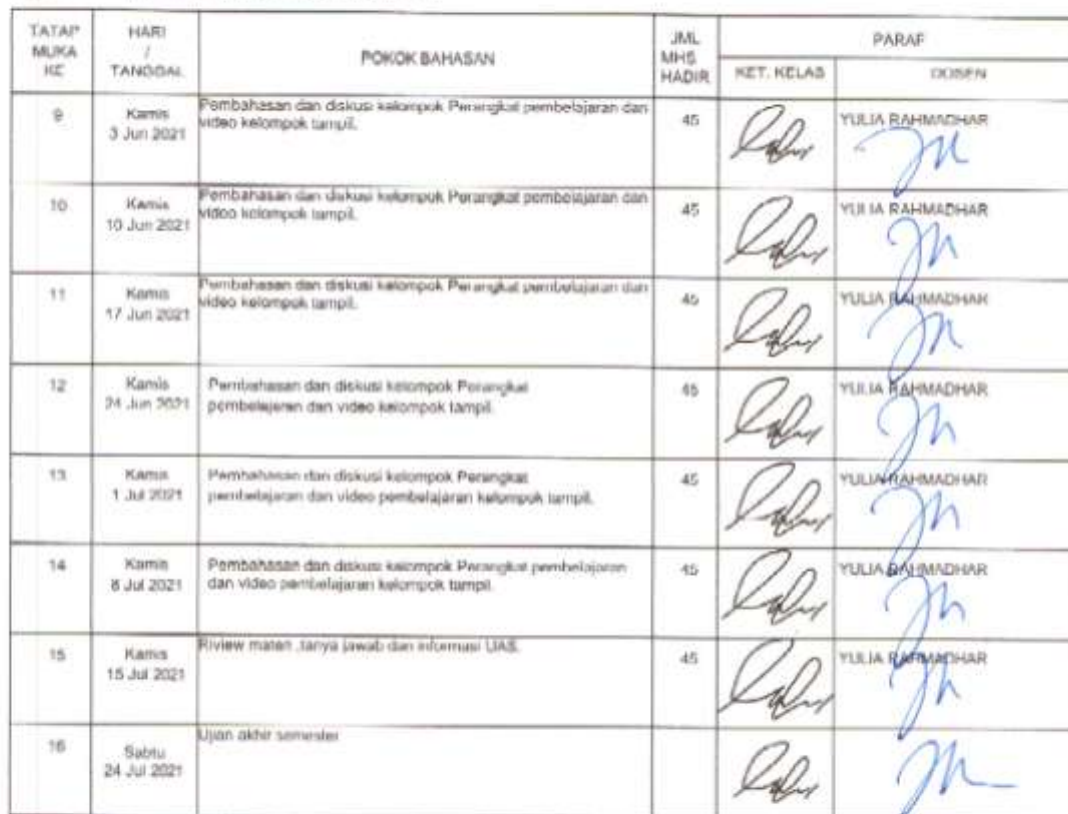 TATAP MUKA KE
HARI / TANGGAL
POKOK BAHASAN
JML MHS HADIR
PARAF
KET. KELAS
DOSEN
9
Kamis
3 Jun 2021
Pembahasan dan diskusi kelompok Perangkat pembelajaran dan
video kelompok tampil.
45
YULIA RAHMADHAR
10
Kamis
10 Jun 2021
Pembahasan dan diskusi kelompok Perangkat pembelajaran dan
video kelompok tampil.
45
YULIA RAHMADHAR
11
Kamis
17 Jun 2021
Pembahasan dan diskusi kelompok Perangkat pembelajaran dan
video kelompok tampil.
45
YULIA RAHMADHAR
12
Kamis
24 Jun 2021
Pembahasan dan diskusi kelompok Perangkat
pembelajaran dan video kelompok tampil.
45
YULIA RAHMADHAR
13
Kamis
1 Jul 2021
Pembahasan dan diskusi kelompok Perangkat
pembelajaran dan video pembelajaran kelompok tampil.
45
YULIA RAHMADHAR
14
Kamis
8 Jul 2021
Pembahasan dan diskusi kelompok Perangkat pembelajaran
dan video pembelajaran kelompok tampil.
45
YULIA RAHMADHAR
15
Kamis
15 Jul 2021
Riview materi ,tanya jawab dan informasi UAS.
45
YULIA RAHMADHAR
16
Sabtu
24 Jul 2021
Ujian akhir semester